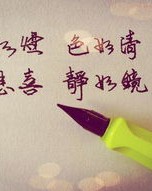 如煙 色如清
悲喜 靜如鏡